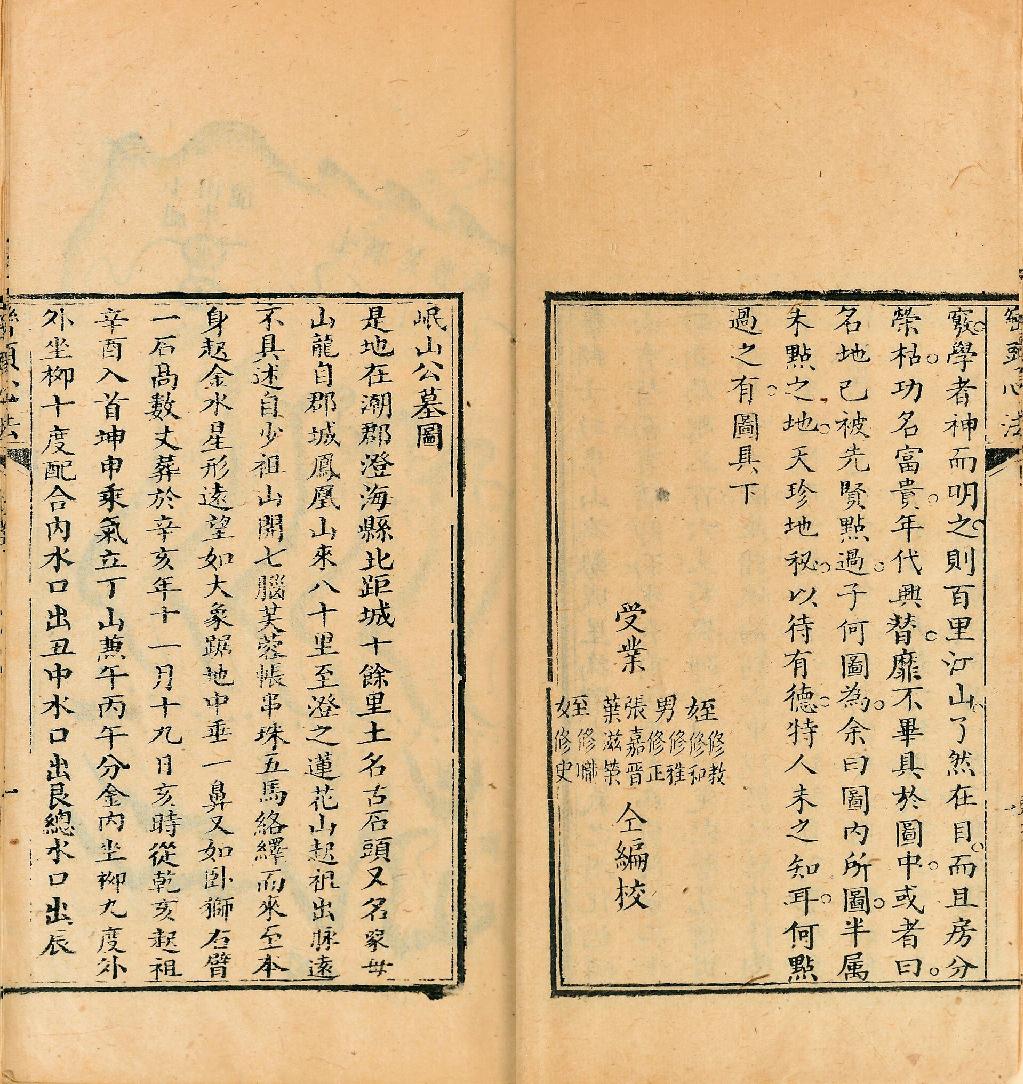 竅學者神而明之則百里江山了然在目而且房分
榮枯功名富貴年代興替靡不畢具於圖中或者曰
名地已被先賢點過子何圖為余曰圖內所圖半属
未點之地天珍地秘以待有德特人未之知耳何點
過之有圖具下
受業
姪修教
修和
男修雅
修正
張嘉晉
葉滋榮
姪修
女修史
仝編校
岷山公墓圖
是地在潮郡澄海縣北距城十餘里土名古石頭又名象母
山龍自郡城鳳凰山來八十里至澄之蓮花山起祖出脉遠
不具述自少祖山開七腦芙蓉帳串珠五馬絡繹而來至本
身起金水星形遠望如大象踞地中垂一鼻又如卧獅右臂
一石高數丈葬於辛亥年十一月十九日亥時從乾亥起祖
辛酉入首坤申乘氣立丁山兼午丙午分金內坐柳九度外
外坐柳十度配合內水口出丑中水口出艮總水口出辰